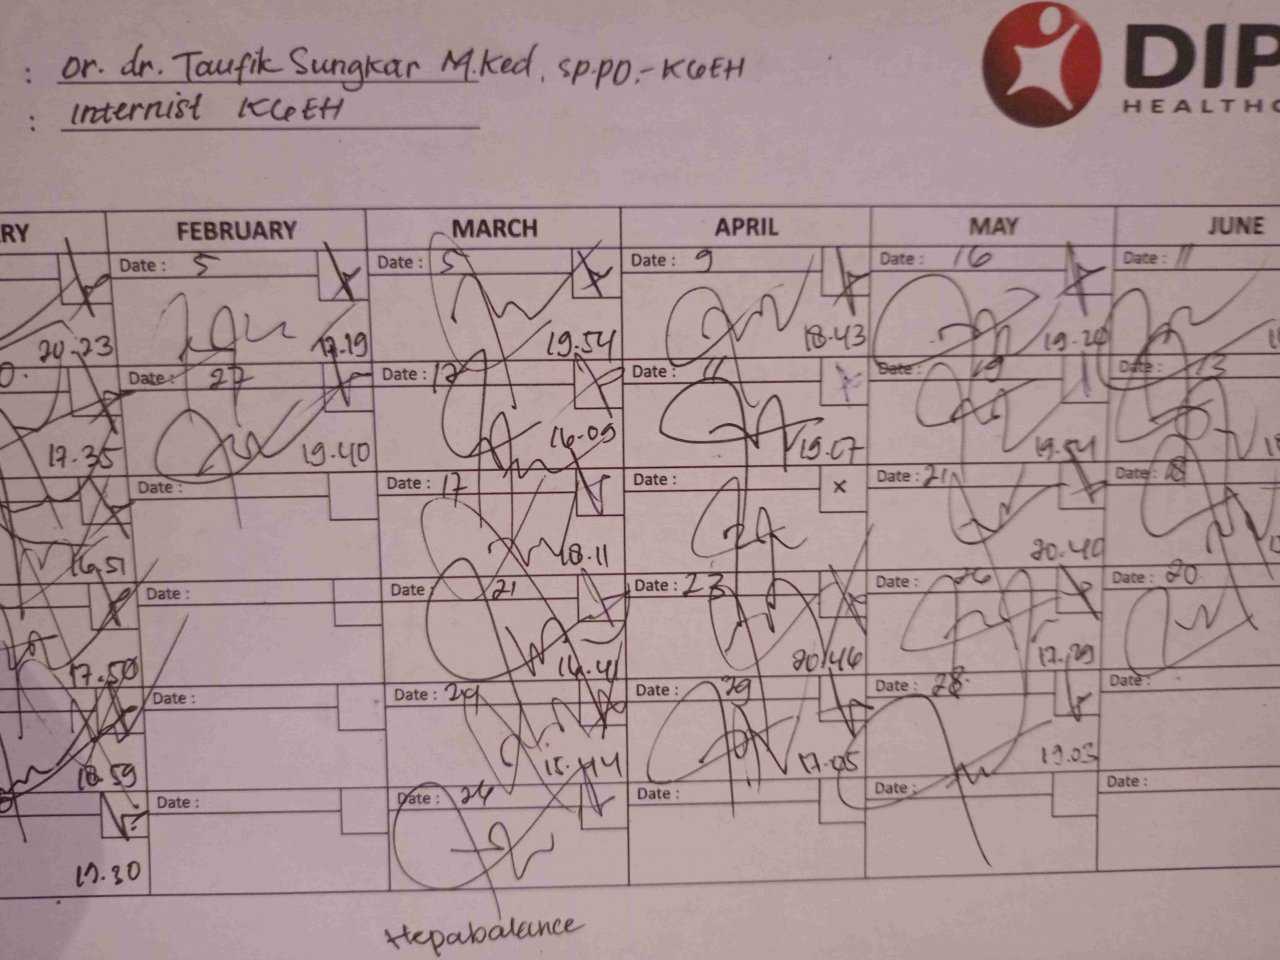 : Dr. dr. Taufik Sungkar M.Ked. SP.PD.-KGEH
: Internist KGEH
DIP
HEALTHC
RY FEBRUARY MARCH APRIL MAY JUNE
Date : 5 Date : 5 Date : 9 Date : 16 Date : 11
20.23 17.19 19.54 18.43 19.20
Date : 27 Date : 12 Date : 11 Date : 19 Date : 13
17.35 19.40 16.09 19.07 19.54
Date : Date : 17 Date : x Date : 21 Date : 18
16.51 18.11 20.40
Date : Date : 21 Date : 23 Date : 26 Date : 20
17.50 16.41 20.46 17.29
Date : Date : 24 Date : 29 Date : 28 Date :
18.59 15.44 17.05 19.03
Date : Date : 26 Date : Date : Date :
19.30
Hepabalance